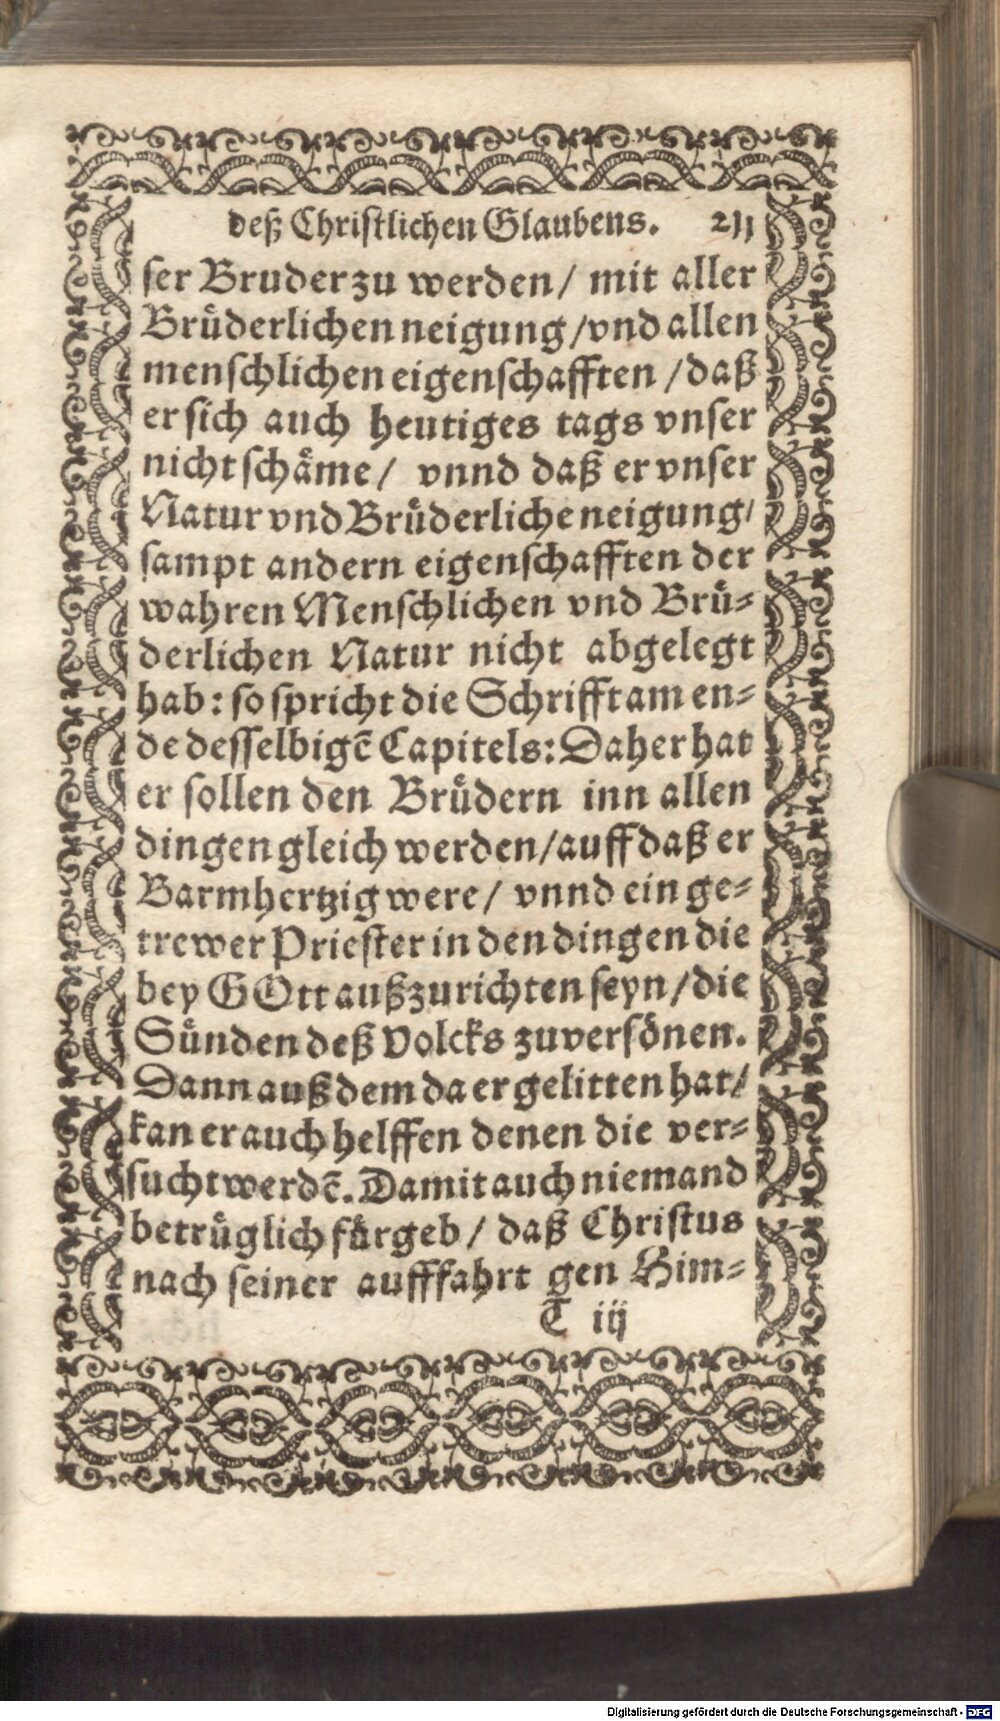 deß Christlichen Glaubens.
ser Bruder zu werden / mit aller
Bruͤderlichen neigung / vnd allen
menschlichen eigenschafften / daß
er sich auch heutiges tags vnser
nicht schaͤme / vnnd daß er vnser
Natur vnd Bruͤderliche neigung /
sampt andern eigenschafften der
wahren Menschlichen vnd Bruͤ-
derlichen Natur nicht abgelegt
hab: so spricht die Schrifft am en-
de desselbigē Capitels: Daher hat
er sollen den Bruͤdern inn allen
dingen gleich werden / auff daß er
Barmhertzig were / vnnd ein ge-
trewer Priester in den dingen die
bey GOtt außzurichten seyn / die
Suͤnden deß Volcks zuversoͤnen.
Dann auß dem da er gelitten hat /
kan er auch helffen denen die ver-
sucht werdē. Damit auch niemand
betruͤglich fuͤrgeb / daß Christus
nach seiner aufffahrt gen Him-
T iij
Digitalisierung gefördert durch die Deutsche Forschungsgemeinschaft - DFG